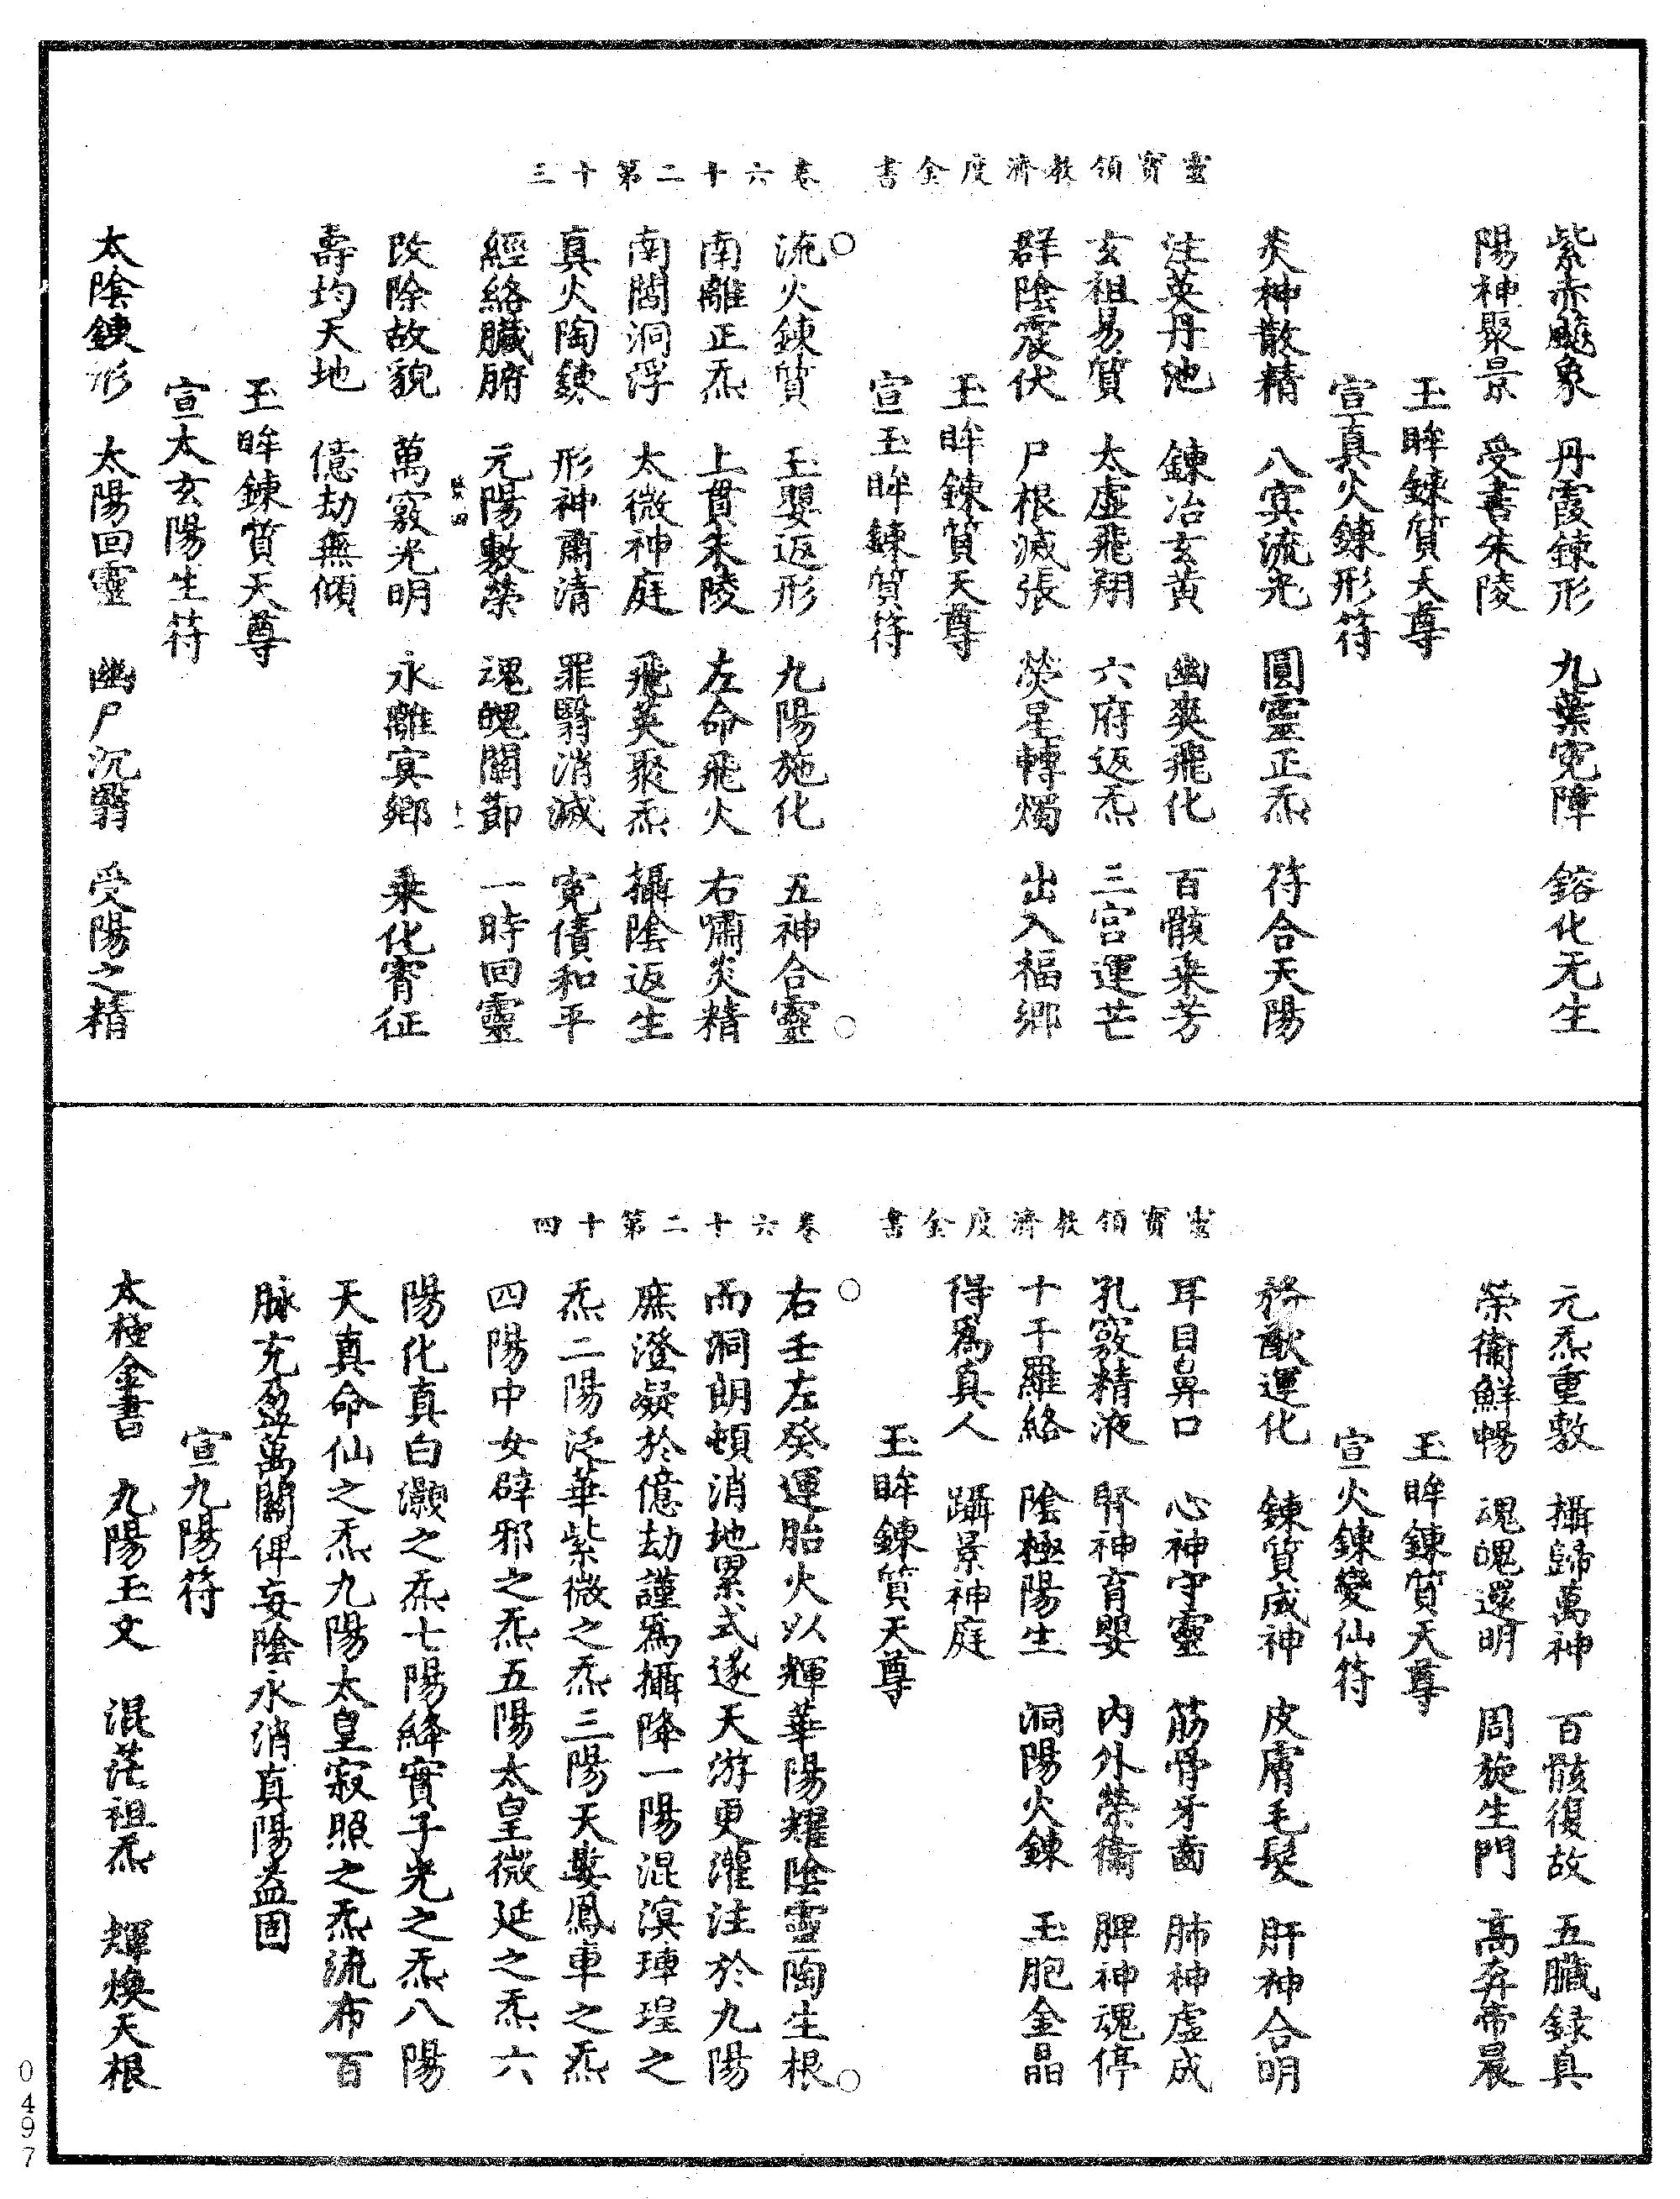 靈寶領教濟度金書　卷六十二第十三
紫赤飈象　丹霞鍊形　九葉寃障　鎔化无生
陽神聚景　受書朱陵
玉眸鍊質天尊
宣真火鍊形符
炎神散精　八㝠流光　圓靈正炁　符合天陽
注英丹池　鍊冶玄黃　幽爽飛化　百骸乗芳
玄祖易質　太虛飛翔　六府返炁　三宮運芒
群陰震伏　尸根滅張　熒星轉燭　出入福鄉
玉眸鍊質天尊
宣玉眸鍊質符
流火鍊質　玉嬰返形　九陽施化　五神合靈
南離正炁　上貫朱陵　左命飛火　右嘯炎精
南閣洞浮　太微神庭　飛英聚炁　攝陰返生
真火陶鍊　形神肅清　罪翳消滅　寃債和平
經絡臟腑　元陽敷榮　魂魄關節　一時回靈
十一
改除故貌　萬竅光明　永離㝠鄉　乗化霄征
壽均天地　億劫無傾
玉眸鍊質天尊
宣太玄陽生符
太陰鍊形　太陽回靈　幽尸沉翳　受陽之精
靈寶領教濟度金書　卷六十二第十四
元炁重敷　攝歸萬神　百骸復故　五臟録真
榮衛鮮暢　魂魄還明　周旋生門　高弃帝晨
玉眸鍊質天尊
宣火鍊變仙符
務猷運化　鍊質成神　皮膚毛髮　肝神合明
耳目鼻口　心神守靈　筋骨牙齒　肺神虛成
孔竅精液　腎神育嬰　内外榮衛　脾神魂停
十干羅絡　陰極陽生　洞陽火鍊　玉胞金晶
得爲真人　躡景神庭
玉眸鍊質天尊
右壬左癸運胎火以輝華陽耀陰靈陶生根
而洞朗頓消地累式遂天游更灌注於九陽
庶澄凝於億劫謹爲攝降一陽混溟琸瑝之
炁二陽泛華紫微之炁三陽天婁鳳車之炁
四陽中女辟邪之炁五陽太皇微延之炁六
陽化真白灝之炁七陽絳實子光之炁八陽
天真命仙之炁九陽太皇寂照之炁流布百
脉充盈萬關俾妄陰永消真陽益固
宣九陽符
太極金書　九陽玉文　混茫祖炁　輝煥天根
0497